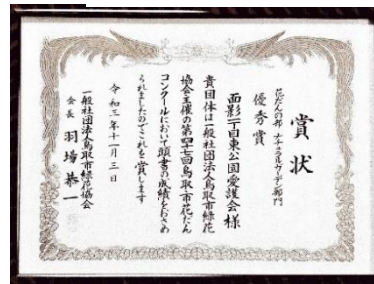 賞状
花だんの部 ナチュラルガーデン部門
優秀賞
面影二丁目東公園愛護会様
貴団体は一般社団法人鳥取市緑花
協会主催の第四十七回鳥取市花だん
コンクールにおいて頭書の成績をおさめ
られましたのでこれを賞します
令和三年十一月三日
一般社団法人鳥取市緑花協会
会長 羽場恭一